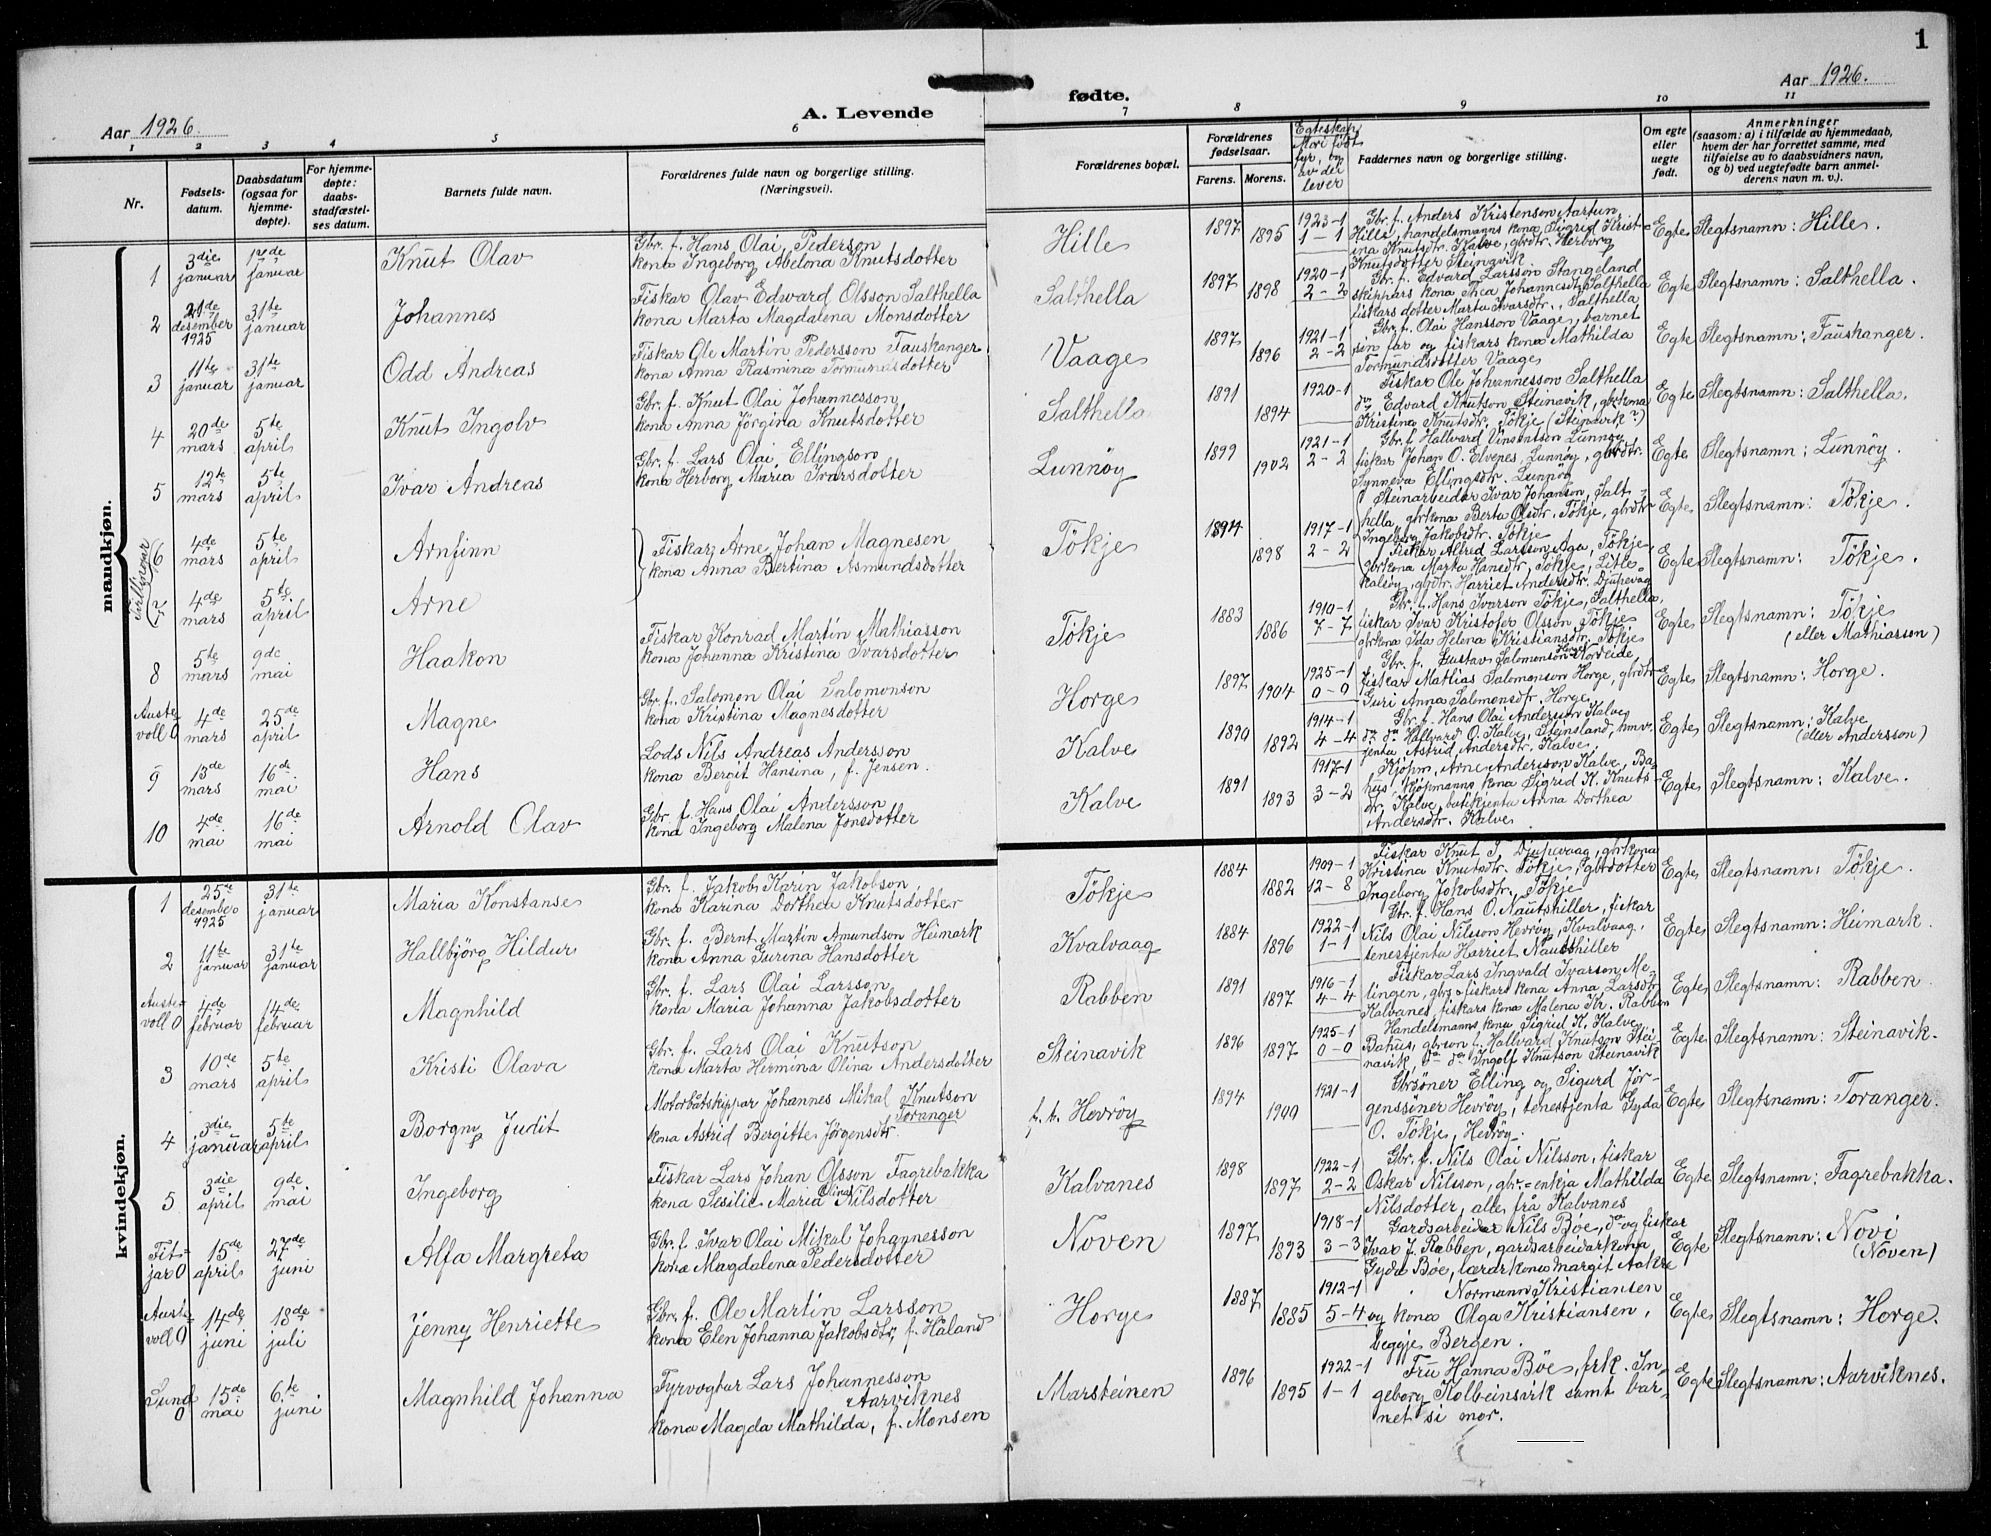 1
Aar 1926.
A. Levende
fødte.
Aar 1926.
1 2 3 4 5 6 7 8 9 10 11
Nr.
Fødsels-
datum.
Daabsdatum
(ogsaa for
hjemme-
døpte).
For hjemme-
døpte:
daabs-
stadfæstel-
ses datum.
Barnets fulde navn.
Forældrenes fulde navn og borgerlige stilling.
(Næringsvei).
Forældrenes bopæl.
Forældrenes
fødselsaar.
Farens. Morens.
Egteskap
Mori født
fyr, og
av dei
lever
Faddernes navn og borgerlige stilling.
Om egte
eller
uegte
født.
Anmerkninger
(saasom: a) i tilfælde av hjemmedaab,
hvem der har forrettet samme, med
tilføielse av to daabsvidners navn,
og b) ved uegtefødte barn anmel-
derens navn m. v.).
mandkjøn.
1
3die
januar
17de
januar
Knut Olav
Gbr. f. Hans Olai Pederson
kona Ingeborg Abelona Knutsdotter
Hille
1897 1895
1923-1
1-1
Gbr. f. Anders Kristenson Aartun
Hille, handelsmanns kona Sigrid Krist-
ina Knutsdtr. Kalve, gbrdtr. Herborg
Knutsdotter Steinavik
Egte
Slegtsnamn: Hille.
2
21de
desember
1925
31te
januar
Johannes
Fiskar Olav Edward Olsson Salthella
kona Marta Magdalena Monsdotter
Salthella
1897 1898
1920-1
2-2
Gbr. f. Edvard Larsson Stangeland
skippars kona Thea Johannesdtr. Salthella
fiskars dotter Marta Ivarsdtr., Salthella
Egte
Slegtsnamn: Salthella.
3
11te
januar
31te
januar
Odd Andreas
Fiskar Ole Martin Pedersson Fauskanger
kona Anna Rasmina Tormunasdotter
Vaage
1897 1896
1921-1
2-2
Gbr. f. Olai Hansson Vaage, barnet
sin far og fiskars kona Mathilda
Tormundsdotter Vaage
Egte
Slegtsnamn: Fauskanger.
4
20de
mars
5te
april
Knut Ingolv
Gbr. f. Knut Olai Johannesson,
kona Anna Jörgina Knutsdotter
Salthella
1891 1894
1920-1
Fiskar Ole Johannesson Salthella
do Edvard Knutson Steinavik, gbrkona
Kristina Knutsdtr. Tökje (Steinavik?)
Egte
Slegtsnamn: Salthella.
5
12te
mars
5te
april
Ivar Andreas
Gbr. f. Lars Olai Ellingson
kona Herborg Maria Ivarsdotter
Lunnöy
1899 1902
1921-1
2-2
Gbr. f. Hallvard Vinsentson Lunnöy
fiskar Johan O. Elvenes, Lunnöy, gbrdtr.
Synneva Ellingsdtr. Lunnöy
Egte
Slegtsnamn: Lunnöy.
Tvillingar
6
4de
mars
5te
april
Arnfinn
Fiskar Arne Johan Magnesen
kona Anna Bertina Asmundsdotter
Tökje
1894 1898
1917-1
2-2
Steinarbeidar Ivar Johanson, Salt-
hella, gbrkona Berta Olsdtr. Tökje, gbrdtr
Ingeborg Jakobsdtr. Tökje
Egte
Slegtsnamn: Tökje.
7
4de
mars
5te
april
Arne
Fiskar Alfred Larsson Aga, Tökje,
gbrkona Marta Hansdtr, Tökje, Litle
Kalsöy, gbrdtr. Harriet Andersdtr. Djupevag
Egte
Slegtsnamn: Tökje.
8
5te
mars
9de
mai
Haakon
Fiskar Konrad Martin Mathiasson
kona Johanna Kristina Ivarsdotter
Tökje
1883 1886
1910-1
7-7
Gbr. f. Hans Ivarson Tökje, Salthella,
fiskar Ivar Kristofer Olsson Tökje
gbrkona Ida Helena Kristiansdtr. Tökje
Egte
Slegtsnamn: Tökje
(eller Mathiasson)
Auste
voll 0
4de
mars
25de
april
Magne
Gbr. f. Salomon Olai Salomonson
kona Kristina Magnesdotter
Horge
1897 1904
1925-1
0-0
Gbr. f. Gustav Salomonson Horge Nordeide,
fiskar Mathias Salomonson Horge, gbrdtr
Guri Anna Salomonsdtr. Horge
Egte
Slegtsnamn: Horge.
9
13de
mars
16de
mai
Hans
Lods Nils Andreas Andersson
kona Bergit Hansina, f. Jensen.
Kalve
1890 1892
1914-1
4-4
Gbr. f. Hans Olai Anderson Kalve
do do Hallvard O. Kalve, Steinsland, hmv.
jenta Astrid Andersdtr. Kalve
Egte
Slegtsnamn: Kalve
(eller Andersson)
10
4de
mai
16de
mai
Arnold Olav
Gbr. f. Hans Olai Andersson
kona Ingeborg Malena Jonsdotter
Kalve
1891 1893
1917-1
3-2
Kjöpm. Arne Andersson Kalve, Ba-
hus kjöpmanns kona Sigrid K. Knuts-
dr. Kalve, butikjenta Anna Dorthea
Andersdtr. Kalve
Egte
Slegtsnamn: Kalve.
kvindekjøn.
1
25te
desember
1925
31te
januar
Maria Konstanse
Gbr. f. Jakob Karin Jakobson
kona Karina Dorthea Knutsdotter
Tökje
1884 1882
1909-1
12-8
Fiskar Knut J. Djupevaag, gbrkona
Kristina Knutsdtr. Tökje, gbrdotter
Ingeborg Jakobsdtr. Tökje
Egte
Slegtsnamn: Tökje.
2
11te
januar
31te
januar
Hallbjörg Hildur
Gbr. f. Bernt Martin Amundson Heimark
kona Anna Surina Hansdotter
Kvalvaag
1884 1896
1922-1
1-1
Gbr. f. Hans O. Nautshiller, fiskar
Nils Olai Nilsson Hevröy, Kvalvaag,
tenestjenta Harriet Nautshiller
Egte
Slegtsnamn: Heimark.
Auste
voll 0
4de
februar
14de
februar
Magnhild
Gbr. f. Lars Olai Larsson
kona Maria Johanna Jakobsdotter
Rabben
1891 1897
1916-1
4-4
Fiskar Lars Ingvald Ivarson, Me-
lingen, gbrg fiskars kona Anna Larsdtr.
Kalvanes, fiskars kona Malena Kr. Rabben
Egte
Slegtsnamn: Rabben
3
10de
mars
5te
april
Kristi Olava
Gbr. f. Lars Olai Knutson
kona Marta Hermina Olina Andersdotter
Steinavik
1896 1897
1925-1
0-0
Handelsmanns kona Sigrid K. Kalve
Bahus, gbrson Hallvard Knutson Stei-
navik, do do Ingolf Knutson Steinavik
Egte
Slegtsnamn: Steinavik.
4
3die
januar
5te
april
Borgny Judit
Motorbåtskippar Johannes Mikal Knutson
Toranger
kona Astrid Bergitte Jörgensdtr.
f. t. Hevröy
1894 1900
1921-1
Gbrsöner Elling og Sigurd Jör-
genssöner Hevröy, tenestjenta Gyda
O. Tökje, Hevröy.
Egte
Slegtsnamn: Toranger.
5
3die
april
9de
mai
Ingeborg
Fiskar Lars Johan Olsson Fagrebakka
kona Sesilie Maria Olina Nilsdotter
Kalvanes
1898 1897
1922-1
2-2
Gbr. f. Nils Olai Nilsson, fiskar
Oskar Nilsson, gbr.=enkja Mathilda
Nilsdotter, alle frå Kalvanes
Egte
Slegtsnamn: Fagrebakka.
Fit-
jar 0
15de
april
27de
juni
Alfa Margreta
Gbr. f. Ivar Olai Mikal Johannesson
kona Magdalena Pedersdotter
Noven
1897 1893
1918-1
3-3
Gardsarbeidar Nils Böe, do og fiskar
Ivar J. Rabben, gardsarbeidarkona
Gyda Böe, lærarkona Margit Aakre
Egte
Slegtsnamn: Novi
(Noven)
Auste
voll 0
14de
juni
18de
juli
Jenny Henriette
Gbr. f. Ole Martin Larsson
kona Elen Johanna Jakobsdtr, f. Håland
Horge
1887 1885
1912-1
5-4
Normann Kristiansen
og kona Olga Kristiansen,
beggje Bergen.
Egte
Slegtsnamn: Horge.
Sund
0
15de
mai
6te
juni
Magnhild Johanna
Fyrvogtar Lars Johannesson
Aarviknes
kona Magda Mathilda, f. Monsen
Marsteinen
1896 1895
1922-1
1-1
Fru Hanna Böe, frk. In-
geborg Kolbeinsvik samt bar-
net si mor.
Egte
Slegtsnamn: Aarviknes.